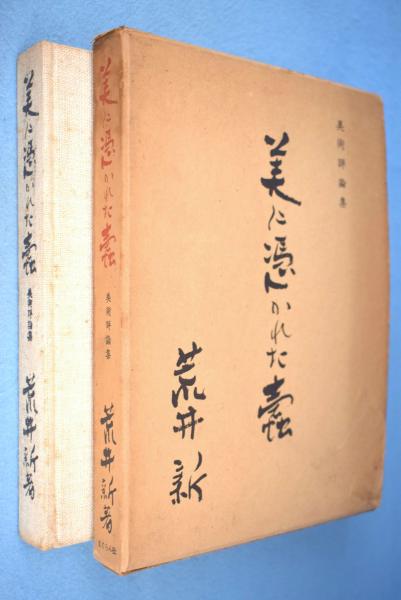 美術評論集
美に憑かれた蠹
荒井新
美に憑かれた蠹
美術評論集
荒井新著
美に憑かれた蠹
美術評論集
荒井新著